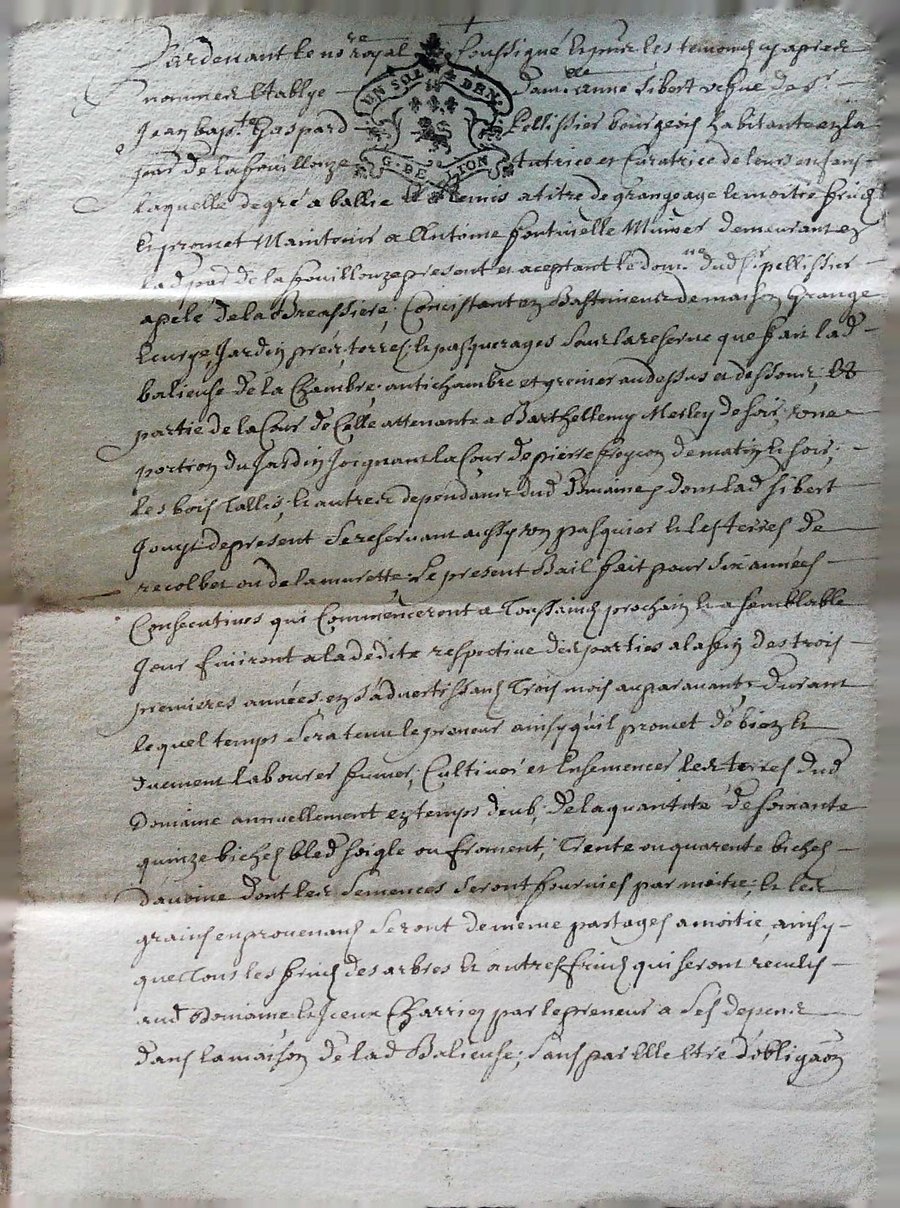 Pardevant le no.re royal soussigné et pnr les temoings cy apres
nommez Etablye dam.elle anne sibert vefue de s.r
Jean bap.te Gaspard Pellissier bourgeois habitante en la
par de la fouillouze tutrice et Curatrice de leurs enfans
EN SOL DEN.
G. DE LION
laquelle de gré a ballié et remis a titre de grangeage le moitie fruicts
et promet Maintenir a Anthoine fontvielle demeurant en
lad par de la fouillouze present et aceptant le dom.ne dud s.r pellissier
apelé de la Breassiere Concistant en Bastimens de maison Grange
Jardin prez terres et pasquerages sous la reserve que fait lad
balieuse de la Chambre antichambre et grenier au dessus et dessous, et
partie de la Cour de Celle attenante a Barthellemy Merley de soir, vne
portion du Jardin Joignant la Cour de pierre de matin et soir,
les bois Tallis, et autres dependances dud Domaine dont lad sibert
Jouyt de present se reservant aussy son pasquier et les terres de
recolbet ou de la murette. Le present Bail fait pour six années
Consecutives qui Commenceront a Toussaincts prochain et a semblable
Jour finiront a la dédite respective des parties a la fin des trois
premieres années en s'advertissant Trois mois auparavant, durant
lequel temps sera tenu le preneur ainsy qu'il promet de bien et
duement labourer fumer, Cultiver et Ensemencer les terres dud
domaine annuellement en temps deub, de la quantité de soixante
quinze bichets bled soigle ou froment, Trente ou quarente bichets
d'avoine dont les semences seront fournies par moitie, et les
grains en provenants seront de meme partagés a moitie, ainsy
que Tous les fruicts des arbres et autres fruicts qui seront reculis
aud Domaine et Jceux Charriez par le preneur a ses depens
dans la maison de lad Balieuse, sans par Elle Etre d'obligãon